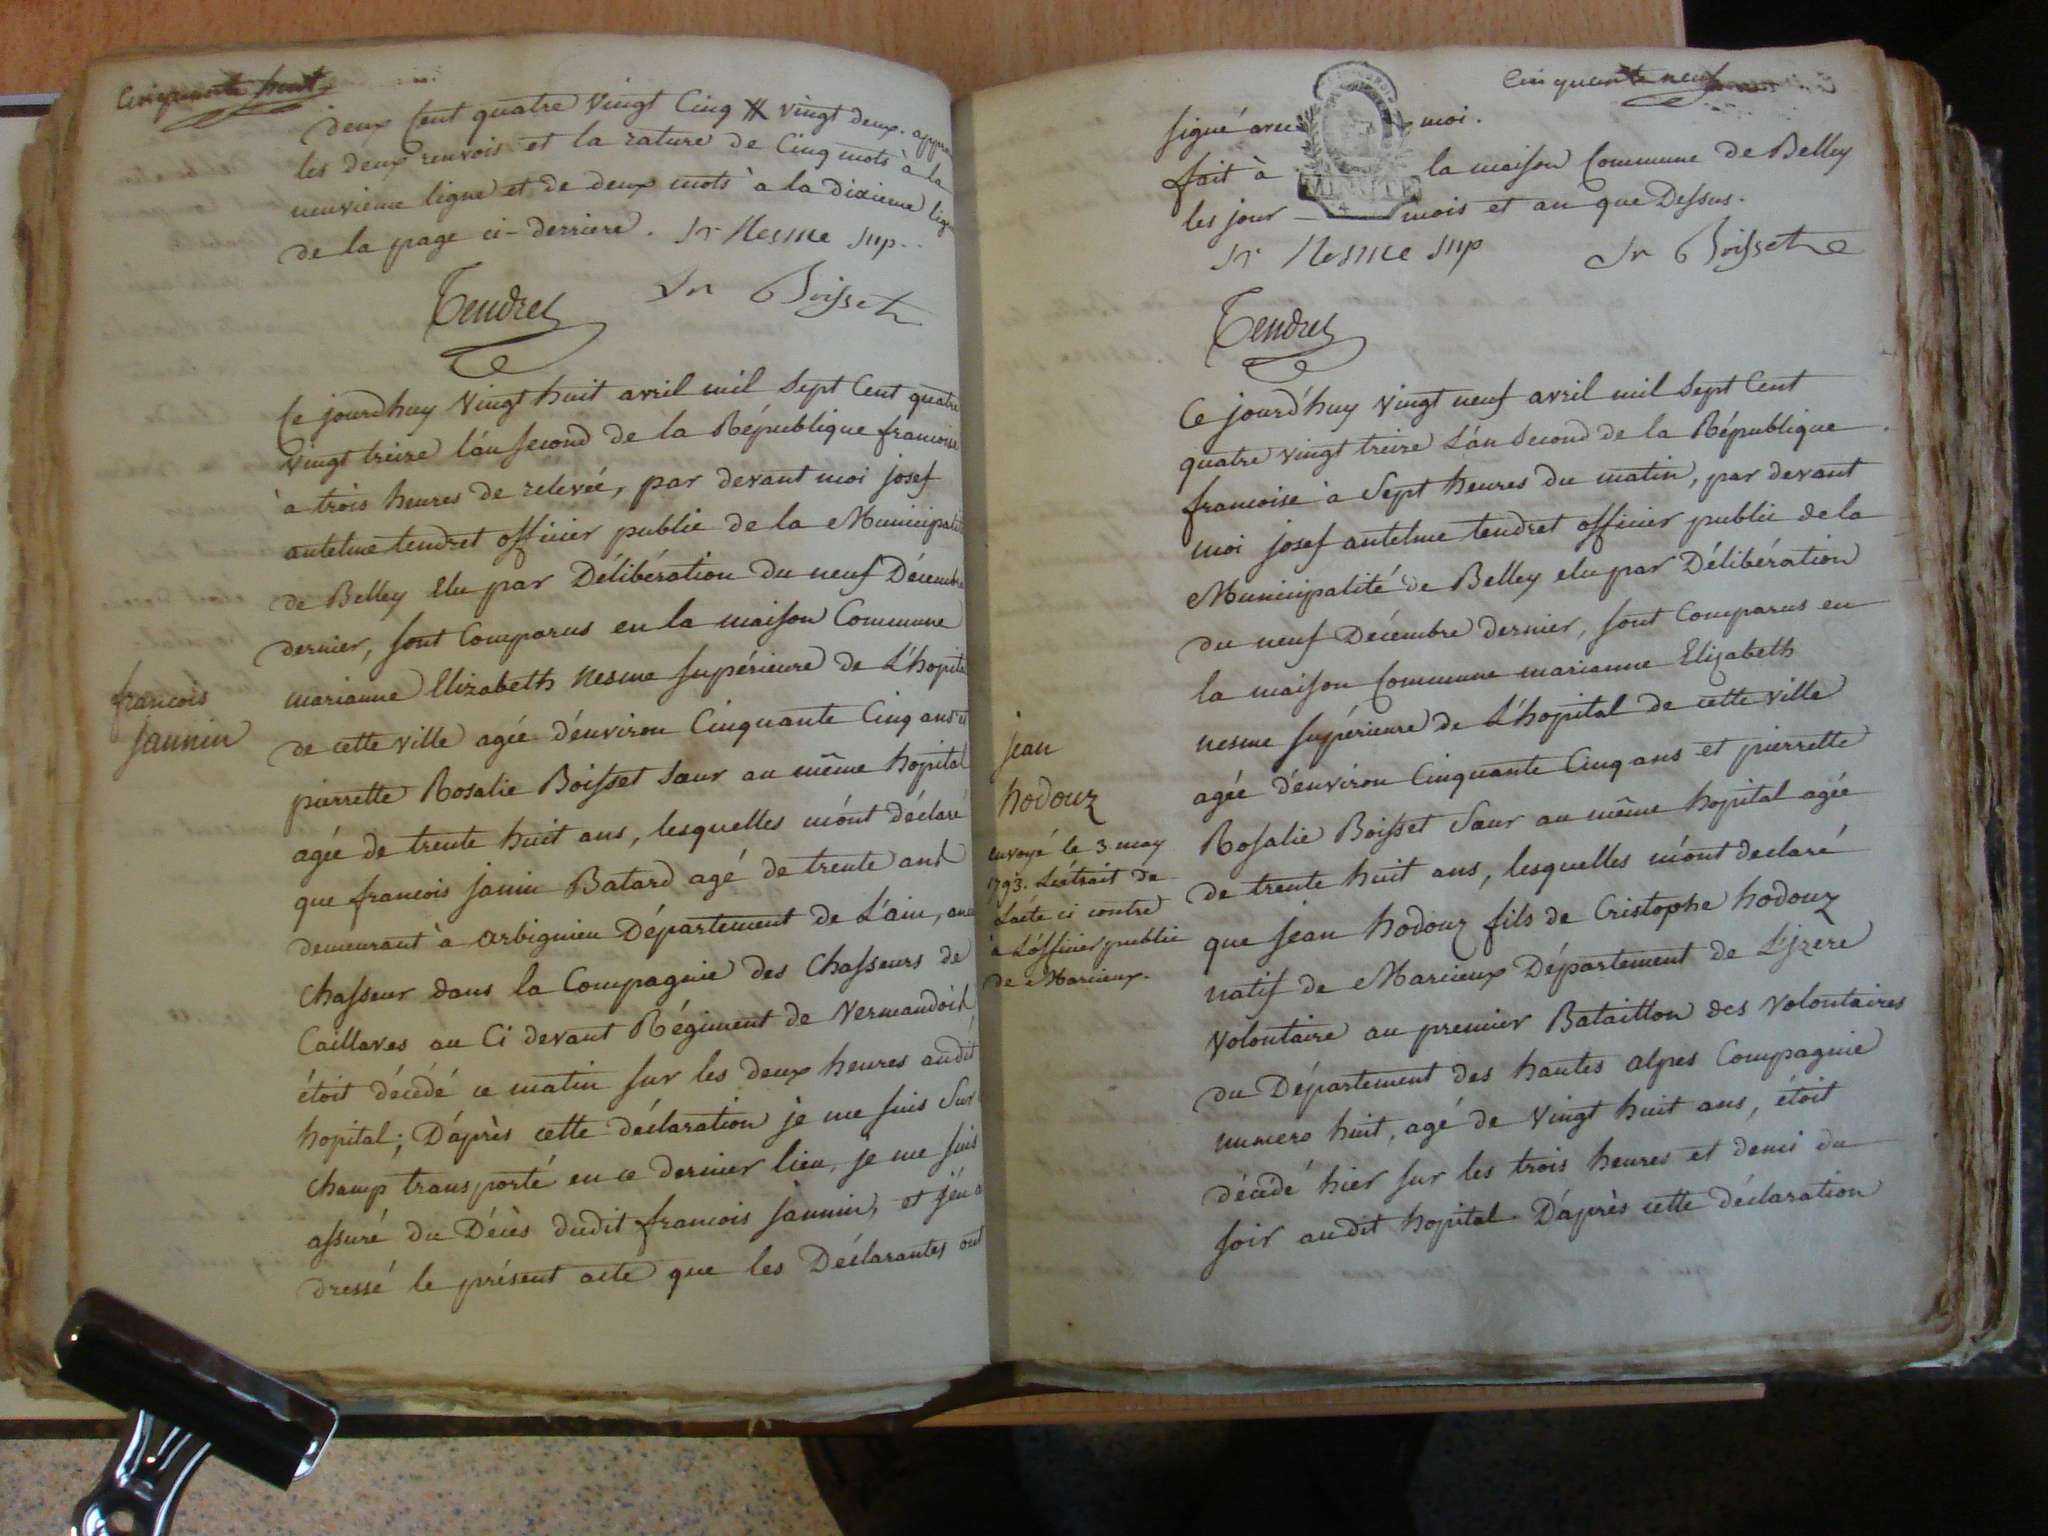 Cinquante huit
deux Cent quatre vingt Cinq # vingt deux. appr
les deux renvois et la rature de Cinq mots à la
neuvième ligne et de deux mots à la dixieme lign
de la page ci-derriere. Sr Nesme Sup.
Tendret Sr Boisset
Ce jourd'huy vingt huit avril mil Sept Cent quatre
vingt treize l'an second de la République francoise
à trois heures de relevée, par devant moi josef
antelme tendret officier public de la Municipalité
de Belley Elu par Délibération du neuf Décembre
dernier, sont Comparus en la maison Commune
marianne Elizabeth Nesme supérieure de L'hopital
de cette ville agée d'environ Cinquante Cinq ans et
pierrette Rosalie Boisset Sœur au même hopital
agée de trente huit ans, lesquelles m'ont déclaré
que francois janin Batard agé de trente ans
demeurant à arbignieu Département de L'ain,
Chasseur dans la Compagnie des Chasseurs de
Caillaves au Ci devant Régiment de Vermandois
étoit décédé ce matin sur les deux heures audit
hopital; D'après cette déclaration je me suis Sur
Champ transporté en ce dernier lieu, je me suis
assuré du Décès dudit francois jannin, et j'en a
dressé le présent acte que les Déclarantes ont
francois
jannin
Cinquante neuf
signé avec moi.
fait à la maison Commune de Belley
les jour mois et an que Dessus.
Sr Nesme Sup Sr Boisset
Tendret
MINUTE
4
Ce jourd'huy vingt neuf avril mil Sept Cent
quatre vingt treize L'an Second de la République
francoise à Sept heures du matin, par devant
moi josef antelme tendret officier public de la
Municipalité de Belley elu par Délibération
du neuf Décembre dernier, sont Comparus en
la maison Commune marianne Elizabeth
nesme supérieure de L'hopital de cette ville
agée d'environ Cinquante Cinq ans et pierrette
Rosalie Boisset Sœur au même hopital agée
de trente huit ans, lesquelles m'ont declaré
que jean hodouz fils de Cristophe hodouz
natif de Marcieux Département de L'jzère
Volontaire au premier Bataillon des Volontaires
du Département des hautes alpes Compagnie
numero huit, agé de Vingt huit ans, étoit
décédé hier sur les trois heures et demi du
soir audit hopital. D'après cette déclaration
jean
hodouz
envoyé le 3 may
1793. L'extrait de
L'acte ci contre
à L'officier public
de Marcieux.